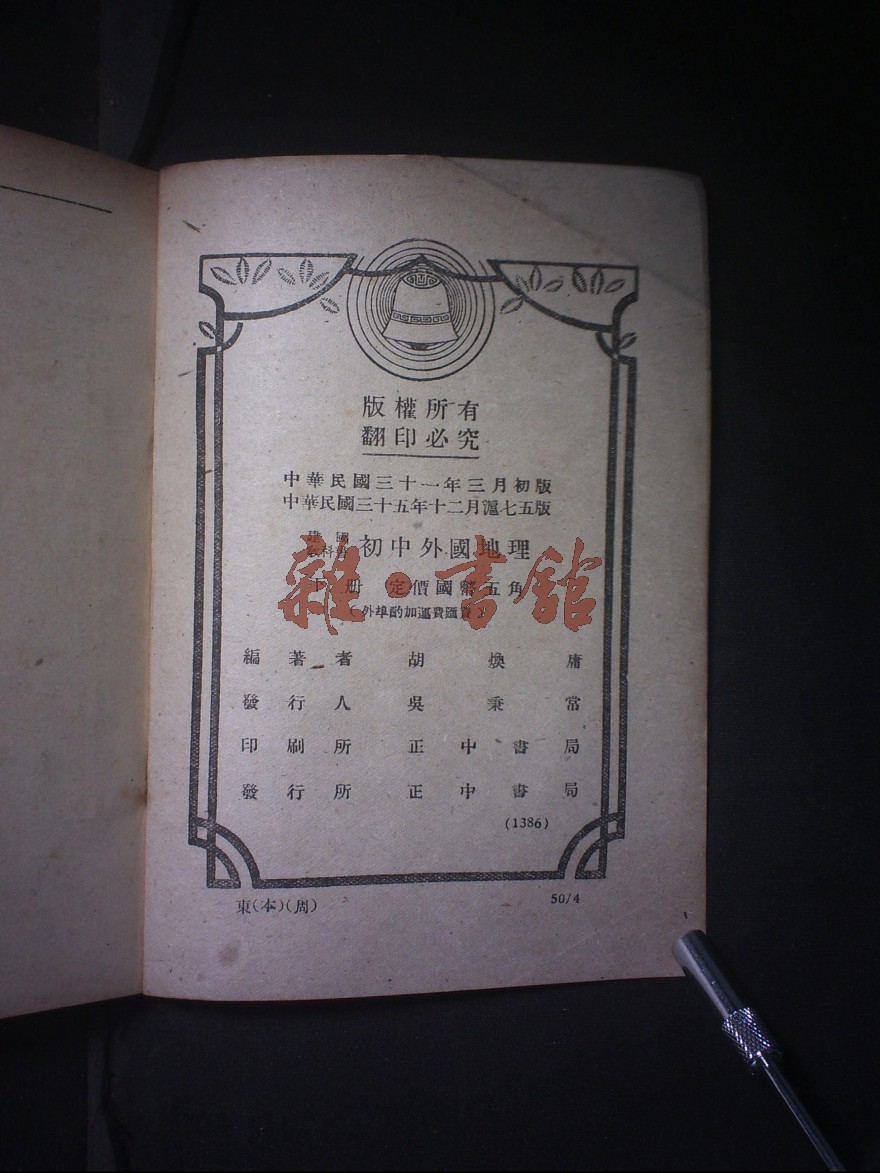 版權所有
翻印必究
中華民國三十一年三月初版
中華民國三十五年十二月滬七五版
建國
教科書 初中外國地理
下册 定價國幣五角
(外埠酌加運費匯費)
雜·書館
編著者 胡煥庸
發行人 吳秉常
印刷所 正中書局
發行所 正中書局
(1386)
東(本)(周) 50/4